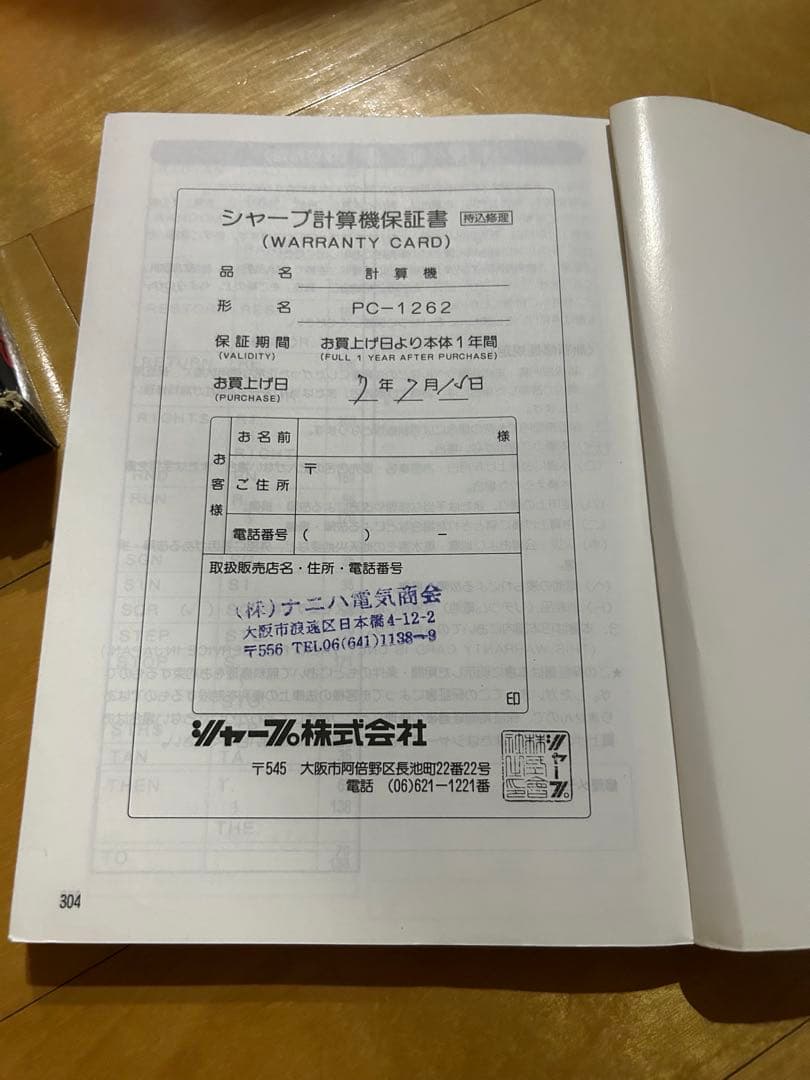 シャープ計算機保証書 持込修理
(WARRANTY CARD)
品名 計算機
形名 PC-1262
保証期間 お買上げ日より本体1年間
(VALIDITY) (FULL 1 YEAR AFTER PURCHASE)
お買上げ日 年 月 日
(PURCHASE)
お客様
お名前 様
ご住所 〒
電話番号 ( ) −
取扱販売店名・住所・電話番号
(株)ナニハ電気商会
大阪市浪速区日本橋4-12-2
〒556 TEL06(641)1138~9
印
シャープ株式会社
〒545 大阪市阿倍野区長池町22番22号
電話 (06)621-1221番
304